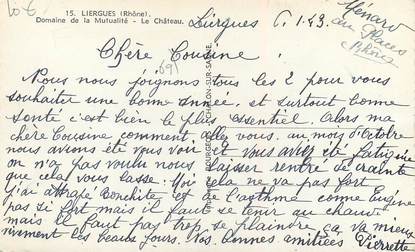 15. LIERGUES (Rhône)
Domaine de la Mutualité - Le Château.
Liergues 6.1.83
Ménard
au Places
Rhône
Chère Cousine
69
Nous nous joignons tous les 2 pour vous
souhaiter une bonne année, et surtout bonne
santé c'est bien le plus essentiel. Alors ma
chère Cousine comment allez vous. au mois d'Octobre
nous avions été vous voir et vous aviez été fatiguée
on n'a pas voulu nous laisser rentre de crainte
que cela vous lasse. Moi cela ne va pas fort
j'ai attrapé Bonchite et de l'asthme comme Eugène
pas si fort mais il faut se tenir au chaud
mais il faut pas trop se plaindre ça va mieux
vivement les beaux jours. Nos bonnes amitiées Pierrette